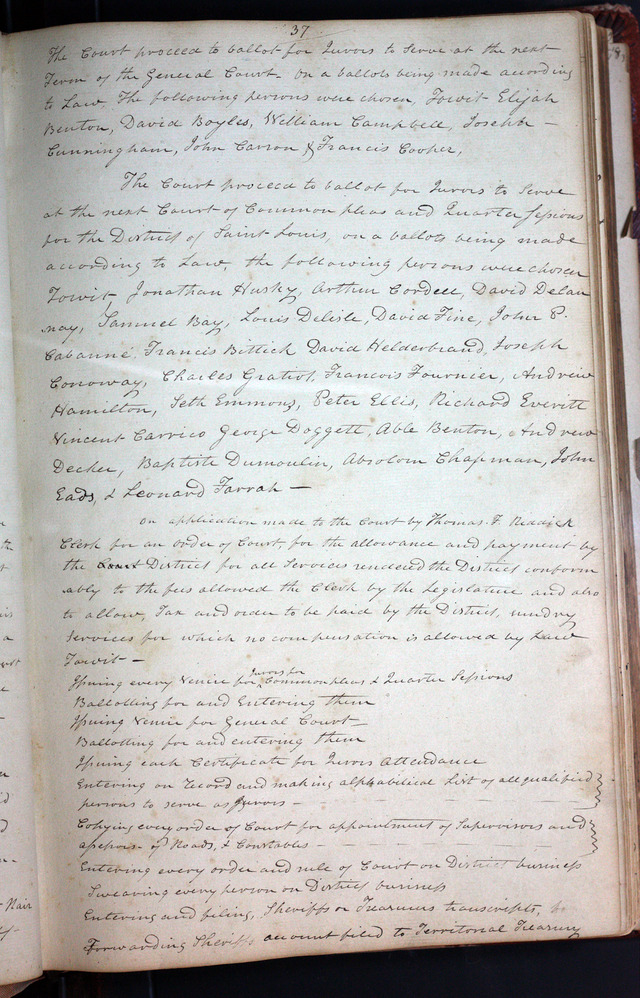 37
The Court proceed to ballot for Jurors to Serve at the next
Term of the General Court – on a ballots being made according
to Law The following persons were chosen, Towit Elijah
Benton, David Boyles, William Campbell, Joseph –
Cunningham, John Carron & Francis Cooper,
The Court proceed to ballot for Jurors to Serve
at the next Court of Common pleas and Quarter Sessions
for the District of Saint Louis, on a ballots being made
according to Law, the following persons were chosen
Towit Jonathan Husky, Arthur Cordell, David Delau
nay, Samuel Bay, Louis Delisle, David Fine, John P.
Cabanné, Francis Bittick David Helderbrand, Joseph
Conoway, Charles Gratiot, Francois Fournier, Andrew
Hamilton, Seth Emmons, Peter Ellis, Richard Everitt
Vincent Carrico George Doggett, Able Benton, Andrew
Decker, Baptiste Dumoulin, Absolom Chapman, John
Eads, & Leonard Farrah —
on application made to the Court by Thomas F Riddick
Clerk for an order of Court, for the allowance and payment by
the District for all Services rendered the District conform
ably to the fees allowed the Clerk by the Legislature and also
to allow, Tax and order to be paid by the District, sundry
Services for which no compensation is allowed by Law
Towit –
Issuing every Venire for Jurors for Common pleas & Quarter Sessions
Ballotting for and Entering them
Issuing Venire for General Court
Ballotting for and entering them
Issuing each Certificate for Jurors Attendance
Entering on record and making alphabetical List of all qualified
persons to serve as Jurors –
Cobying every order of Court for appointment of Supervisors and
of Roads, & Constables –
Entering every order and rule of Court on District business
Swearing every person on District business
Entering and filing, Sheriffs or Treasurers transcripts,
Forwarding Sheriffs account filed to Territorial Treasury